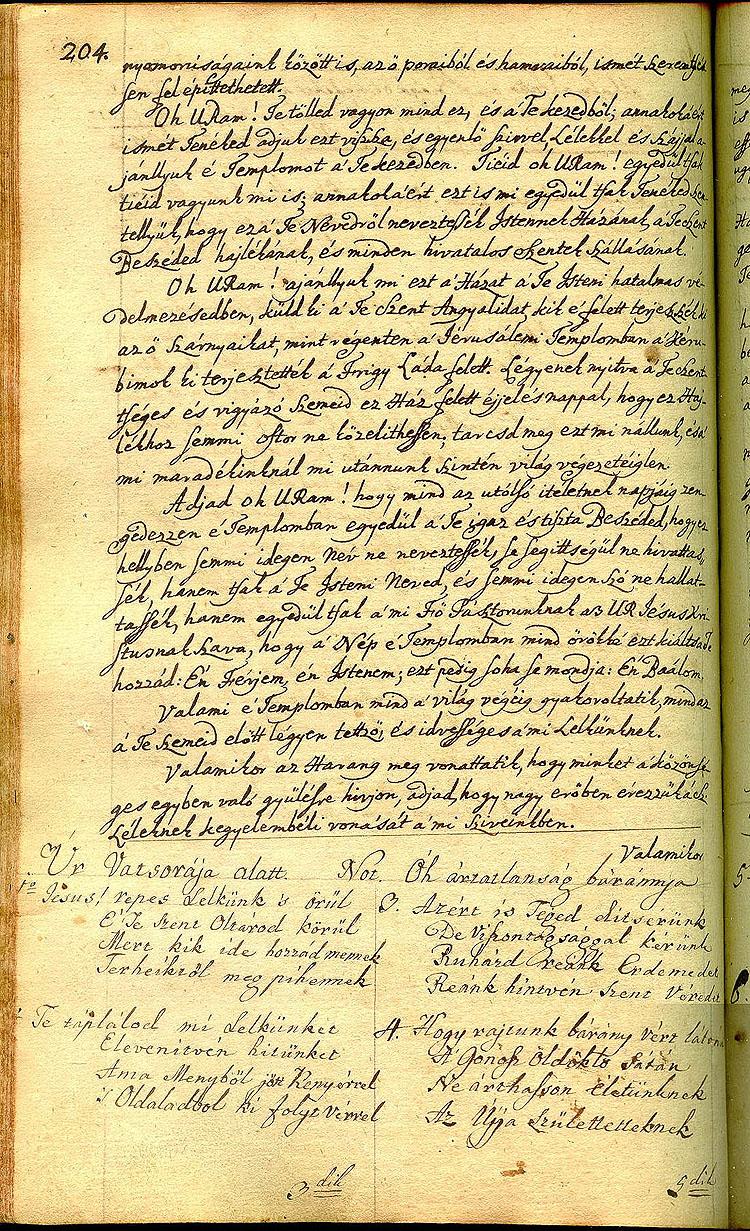 204.
nyomoruságaink között is, az ő poraiból és hamvaiból, ismét
sen fel építtethetett.
Oh URam! Te tőlled vagyon mind ez, és a Te kezedből; annakokáért
ismét Tenéked adjuk ezt viszsza, és egyenlő szivvel, Lélekkel és Szájjal a-
jánllyuk é Templomot á Te kezedben. Tiéid oh URam! egyedül tsak
tiéid vagyunk mi is; annakokáért ezt is mi egyedül tsak Tenéked szen-
tellyük, hogy ez á Te Nevedről neveztessék Istennek Házának, a Te Szent
Beszéded hajlékának, és minden hivatalos Szentek Szállásának.
Oh URam! ajánllyuk mi ezt á Házat á Te Isteni hatalmas vé-
delmezésedben, küld ki á Te Szent Angyalidat, kik é felett terjeszszék ki
az ő Szárnyaikat, mint régenten a Jérusálemi Templomban á Kéru-
bimok ki terjesztették á Frigy Láda felett. Légyenek nyitva á Te Szent
tséges és vigyázó Szemeid ez Ház felett éjjel és nappal, hogy ez Haj-
lékhoz semmi ostor ne közelithessen; tarcsd meg ezt mi nállunk, és á
mi maradékinknál mi utánnunk szintén világ végezetéiglen.
Adjad oh URam! hogy mind az utólsó itéletnek napjáig zen-
gedezzen é Templomban egyedül á Te igaz és tiszta Beszéded, hogy ez
hellyben semmi idegen Név ne neveztessék, se segittségül ne hivattas-
sék, hanem tsak á Te Isteni Neved, és semmi idegen szó ne hallat-
tassék, hanem egyedül tsak á mi Fő Pásztorunknak az UR Jésus Kri-
stusnak Szava, hogy á Nép é Templomban mind örökké ezt kiáltsa Te
hozzád: Én Férjem, én Istenem; ezt pedig soha se mondja: Én Baálom.
Valami é Templomban mind á világ végéig gyakoroltatik, mind az
á Te Szemeid előtt légyen tetsző, és idvességes á mi Lelkünknek.
Valamikor az Harang meg vonattatik, hogy minket á közönsé-
ges egyben való gyülésre hivjon, adjad, hogy nagy erőben érezzük á Sz.
Léleknek kegyelembéli vonását á mi Sziveinkben.
Valamikor
Úr Vatsorája alatt. Not. Óh ártatlanság báránnya
1o Jésus! repes Lelkünk 's örül
E' Te szent Oltárod körül
Mert kik ide hozzád mennek
Terheiktől meg pihennek
Te táplálod mi Lelkünket
Elevenitvén hitünket
Ama Menyből jött Kenyérrel
's Oldaladból ki folyt vérrel
3dik
3. Azért is Téged ditsérünk
De viszontagsággal kérünk
Ruházd reánk Érdemedet
Reánk hintvén szent Véredet
4. Hogy rajtunk bárány vért látván
A' Gonosz öldöklő sátán
Ne árthasson életünknek
Az Újja születetteknek
5dik